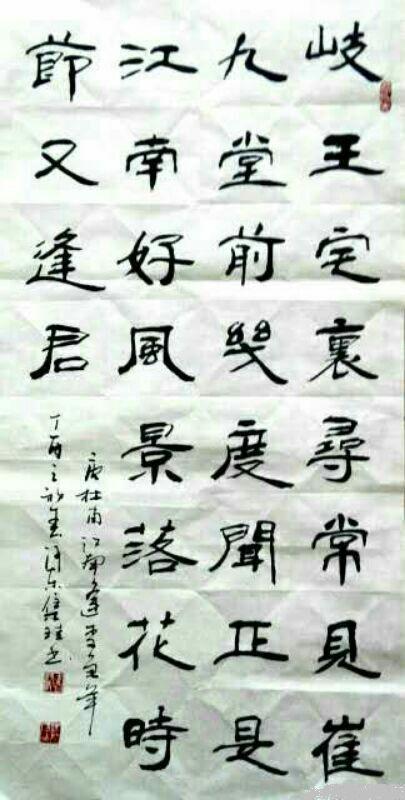 岐王宅裏尋常見崔
九堂前幾度聞正是
江南好風景落花時
節又逢君
唐杜甫江南逢李龟年
丁酉之初春